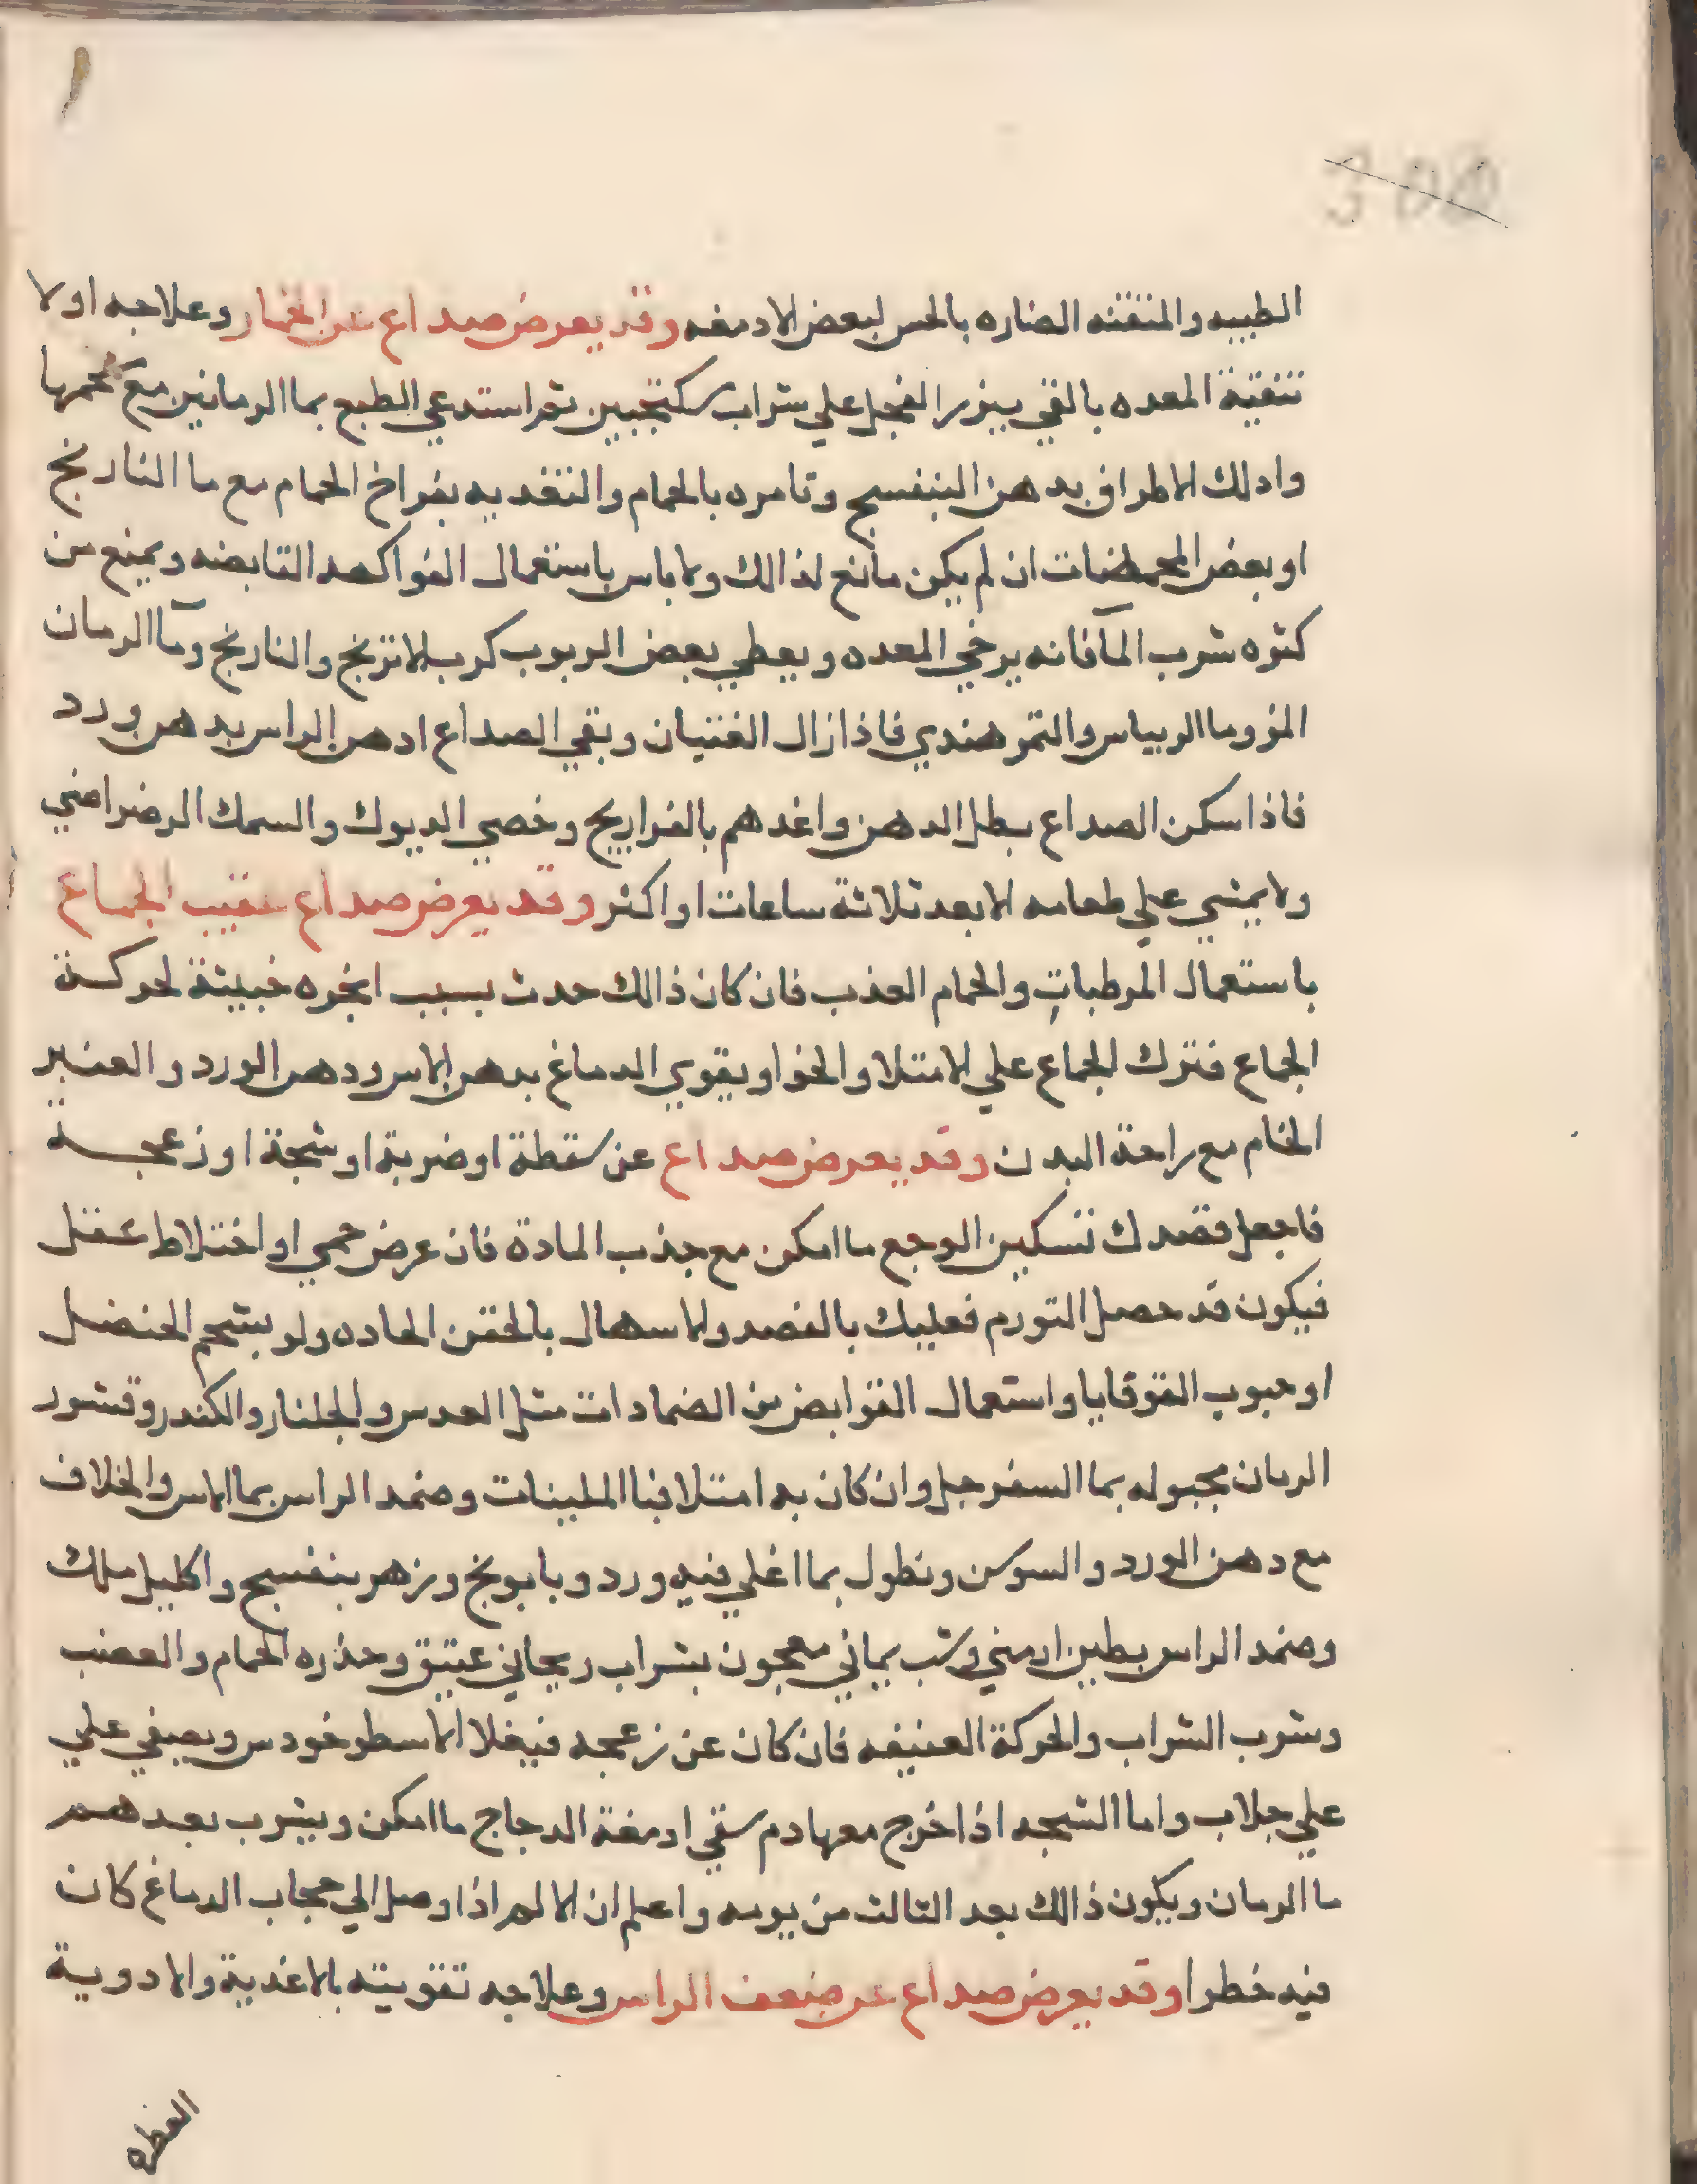 ١
300
الطيبه والمنتنه الضاره بالحس لبعض الادمغه وقد يعرض صداع عن الخمار وعلاجه اولا
تنقية المعده بالقي ببزر الفجل علي شراب سكنجبين ثم استدعي الطبع بما الرمانين مع شحمهما
وادلك الاطراف بدهن البنفسج وتامره بالحمام والتغديه بفراخ الحمام مع ما النارنج
او بعض المحمضات ان لم يكن مانع لذالك ولا باس باستعمال الفواكهه القابضه ويمنع من
كثره شرب المآ فانه يرخي المعده ويعطي بعض الربوب كرب الاترنج والنارنج ومآ الرمان
المز وما الريباس والتمر هندي فاذا زال الغثيان وبقي الصداع ادهن الراس بدهن ورد
فاذا سكن الصداع بطل الدهن واغدهم بالفراريج وخصي الديوك والسمك الرضراضي
ولا يمشي علي طعامه الا بعد ثلاثة ساعات او اكثر وقد يعرض صداع عقيب الجماع
باستعمال المرطبات والحمام العذب فان كان ذالك حدث بسبب ابخره خبيثة لحركة
الجماع فترك الجماع علي الامتلا والخوا ويقوي الدماغ بدهن الاس ودهن الورد والعنبر
الخام مع راحة البدن وقد يعرض صداع عن سقطة او ضربة او شجة او زعجة
فاجعل قصدك تسكين الوجع ما امكن مع جذب المادة فان عرض حمي او اختلاط عقل
فيكون قد حصل التورم فعليك بالفصد والاسهال بالحقن الحاده ولو بشحم الحنضل
او حبوب القوقايا واستعمال القوابض من الضمادات مثل العدس والجلنار والكندر وقشور
الرمان مجبوله بما السفرجل وان كان به امتلا فبا المليينات وضمد الراس بما الاس والخلاف
مع دهن الورد والسوسن ونطول بما اغلي فيه ورد وبابونج وزهر بنفسج واكليل ملك
وضمد الراس بطين ارمني وشب يماني معجون بشراب ريحاني عتيق وحذره الحمام والعضب
وشرب الشراب والحركة العنيفه فان كان عن زعجه فيغلا الاسطوخودس ويصفي علي
علي جلاب واما الشجه اذا خرج معها دم سقي ادمغة الدجاج ما امكن ويشرب بعدهم
ما الرمان ويكون ذالك بعد الثالث من يومه واعلم ان الالم اذا وصل الي حجاب الدماغ كان
فيه خطرا وقد يعرض صداع عن ضعف الراس وعلاجه تقويته بالاغدية والادوية
العطره